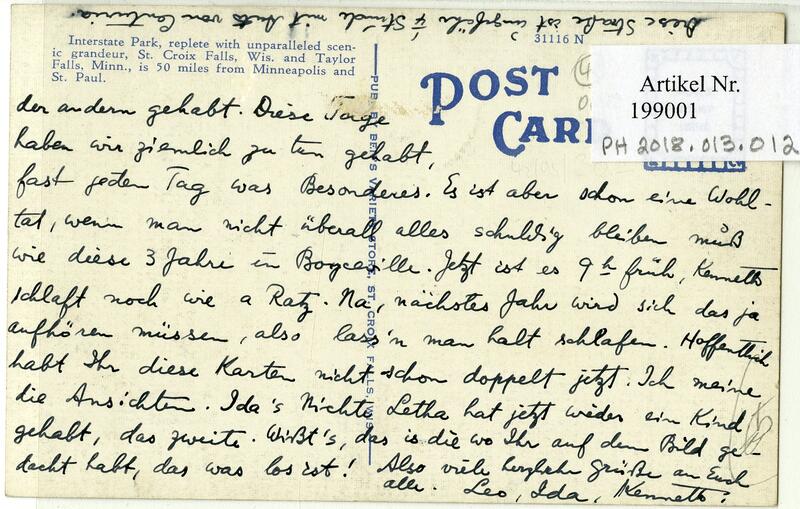 Diese Straße ist ungefähr ¼ Stunde mit Auto von Centuria
Interstate Park, replete with unparalleled scen-
ic grandeur, St. Croix Falls, Wis. and Taylor
Falls, Minn., is 50 miles from Minneapolis and
St. Paul.
31116 N
POST
CARD
Artikel Nr.
199001
PH 2018.013.012
PUB. BY BEN'S VARIETY STORE, ST. CROIX FALLS, WIS.
der andern gehabt. Diese Tage
haben wir ziemlich zu tun gehabt,
fast jeden Tag was Besonderes. Es ist aber schon eine Wohl-
tat, wenn man nicht überall alles schuldig bleiben muß
wie diese 3 Jahre in Boyceville. Jetzt ist es 9 h früh, Kenneth
schlaft noch wie a Ratz. Na, nächstes Jahr wird sich das ja
aufhören müssen, also lass'n man halt schlafen. Hoffentlich
habt Ihr diese Karten nicht schon doppelt jetzt. Ich meine
die Ansichten. Ida's Nichte Letha hat jetzt wieder ein Kind
gehabt, das zweite. Wißt's, das is die wo Ihr auf dem Bild ge-
dacht habt, das was los ist! Also viele herzliche Grüße an Euch
alle. Leo, Ida, Kenneth!